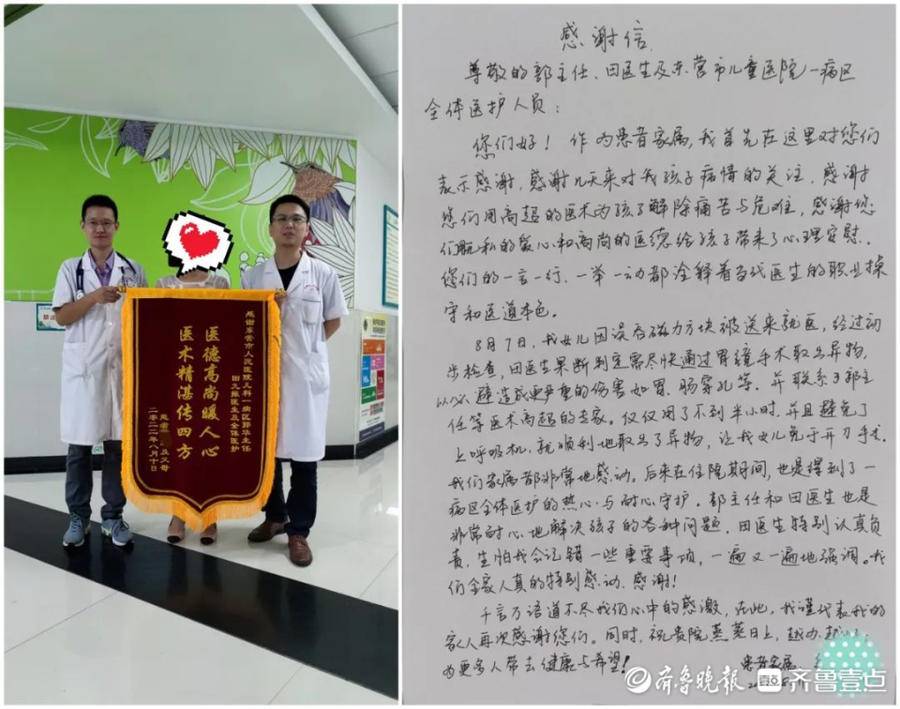 感谢东营市人民医院儿科一病区郭华主任
田久振医生及全体医护
医德高尚暖人心
医术精湛传四方
及父母
二零二二年八月十日
感谢信
尊敬的郭主任、田医生及东营市儿童医院一病区
全体医护人员:
您们好!作为患者家属,我首先在这里对您们
表示感谢,感谢几天来对我孩子病情的关注,感谢
您们用高超的医术为孩子解除痛苦与危难,感谢您
们无私的爱心和高尚的医德给孩子带来了心理安慰。
您们的一言一行、一举一动都诠释着当代医生的职业操
守和医道本色。
8月7日,我女儿因误吞磁力方块被送来就医,经过初
步检查,田医生果断判定需尽快通过胃镜手术取出异物,
以免造成更严重的伤害如胃、肠穿孔等,并联系了郭主
任等医术高超的专家。仅仅用了不到半小时,并且避免了
上呼吸机,就顺利地取出了异物,让我女儿免于开刀手术,
我们家属都非常地感动。后来在住院期间,也是得到了一
病区全体医护的热心与耐心守护。郭主任和田医生也是
非常耐心地解决孩子的各种问题,田医生特别认真负
责,生怕我会记错一些重要事项,一遍又一遍地强调。我
们全家人真的特别感动、感谢!
千言万语道不尽我们心中的感激,在此,我谨代表我的
家人再次感谢您们。同时,祝贵院蒸蒸日上,越办越
为更多人带去健康与希望!
患者家属:
齐鲁晚报 齐鲁壹点